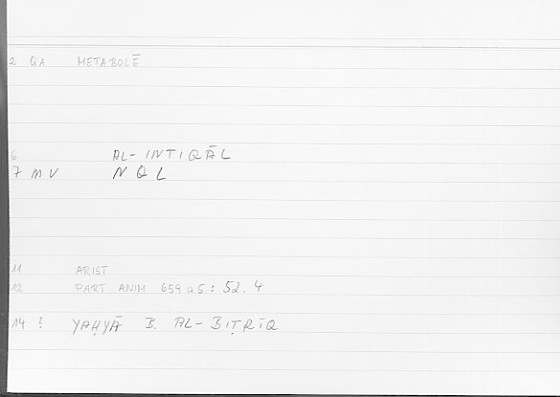 2 QA METABOLĒ
6 AL-INTIQĀL
7 MV NQL
11 ARIST
12 PART ANIM 659 a5 : 52.4
14 ? YAḤYĀ B. AL-BIṬRĪQ